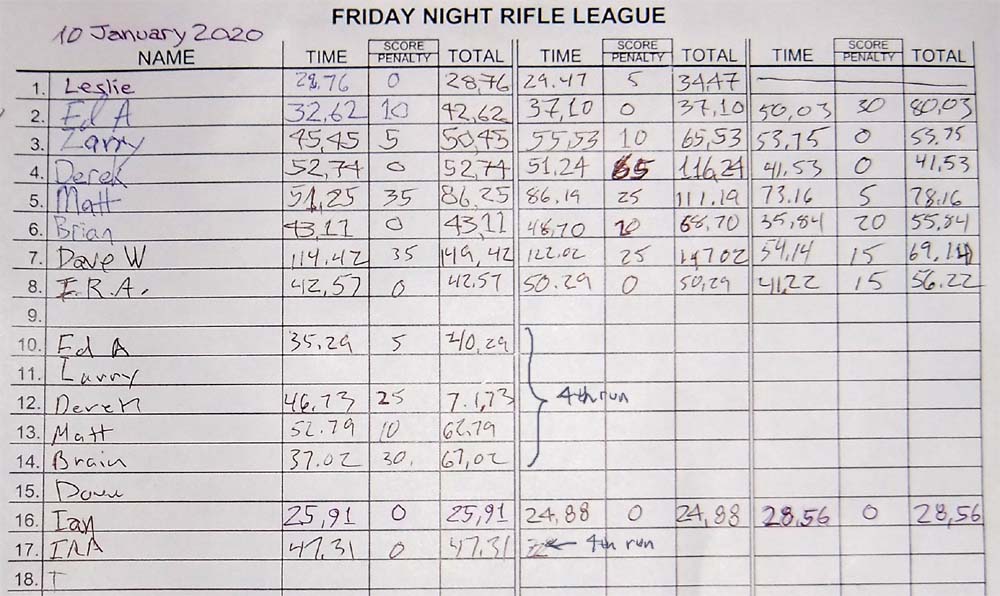 FRIDAY NIGHT RIFLE LEAGUE
10 January 2020
NAME TIME SCORE PENALTY TOTAL TIME SCORE PENALTY TOTAL TIME SCORE PENALTY TOTAL
1. Leslie 28,76 0 28,76 29.47 5 34.47
2. Ed A 32,62 10 42,62 37,10 0 37,10 50,03 30 80,03
3. Larry 45,45 5 50,45 55,53 10 65,53 53,75 0 53.75
4. Derek 52,74 0 52,74 51,24 65 116,24 41,53 0 41,53
5. Matt 51,25 35 86,25 86,19 25 111.19 73.16 5 78.16
6. Brian 43,11 0 43,11 48,70 20 68,70 35,84 20 55,84
7. Dave W 114.42 35 149,42 122.02 25 147.02 54,14 15 69,14
8. I.R.A. 42,57 0 42,57 50.29 0 50,29 41,22 15 56.22
9.
10. Ed A 35.29 5 40,29
11. Larry
12. Derek 46,73 25 7.1,73 4th run
13. Matt 52.79 10 62,79
14. Brain 37.02 30. 67,02
15.
16. Ian 25,91 0 25,91 24,88 0 24,88 28,56 0 28,56
17. IRA 47,31 0 47,31 4th run
18. T